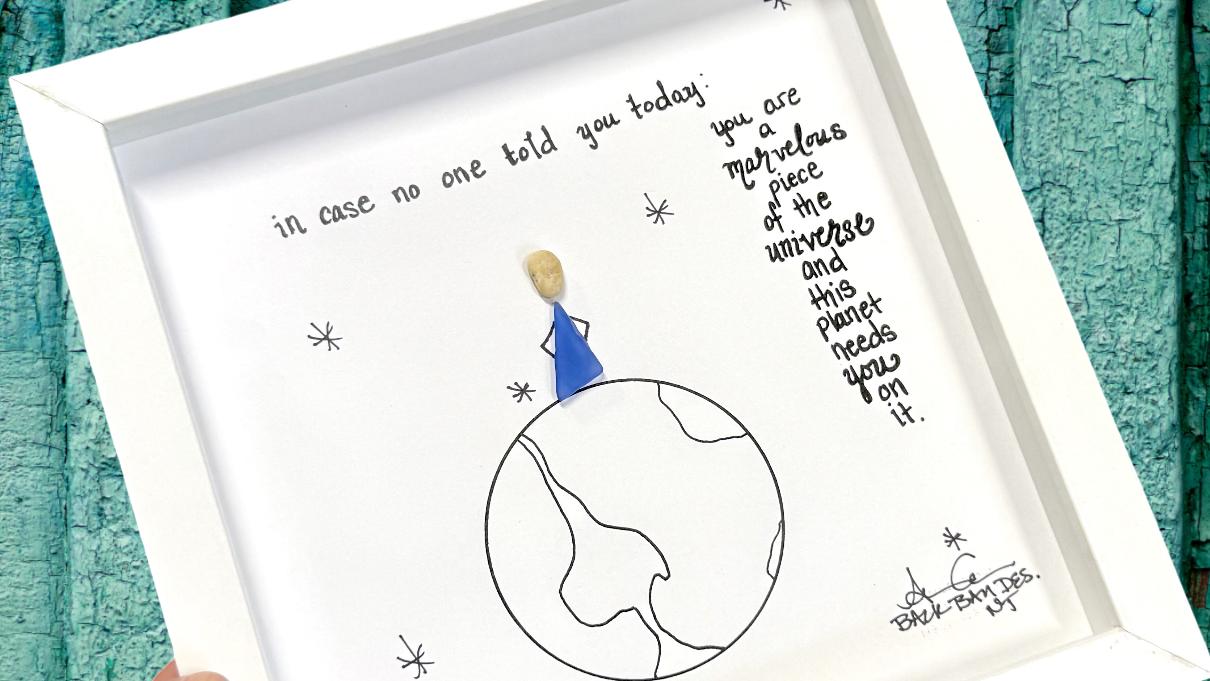 in case no one told you today:
you are
a
marvelous
piece
of the
universe
and
this
planet
needs
you
on
it.
BACK BAY DES.
NJ